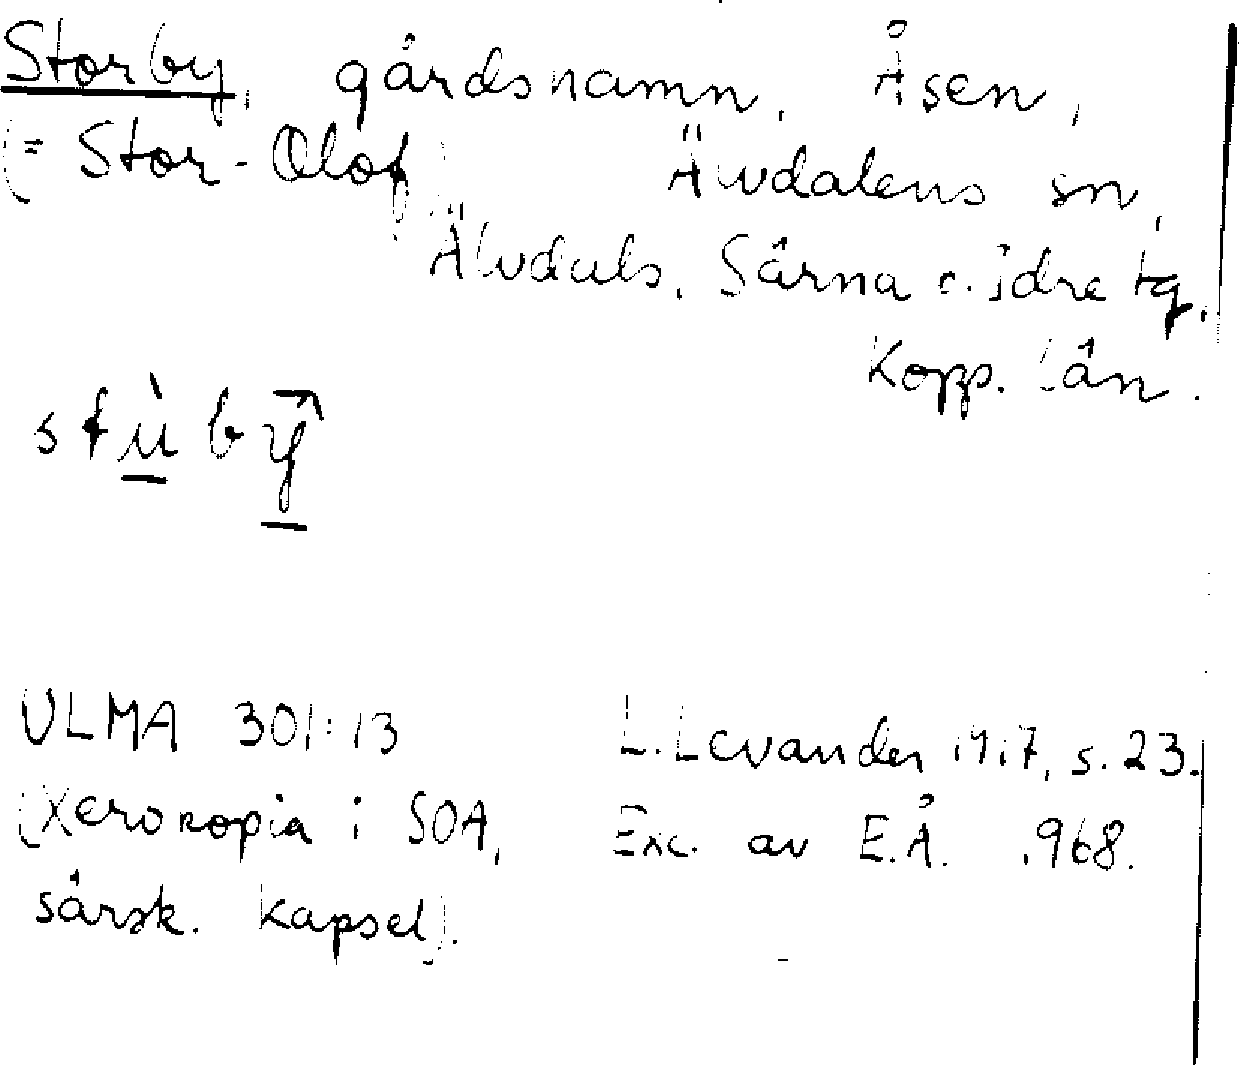 Storby, gårdsnamn, Åsen,
(= Stor-Olof) Älvdalens sn,
Älvdals, Särna o. Idre tg,
Kopp. län.
stùby
ULMA 301:13 L. Levander 1917, s. 23.
(Xerokopia i SOA, Exc. av E.Å. 1968.
särsk. kapsel).